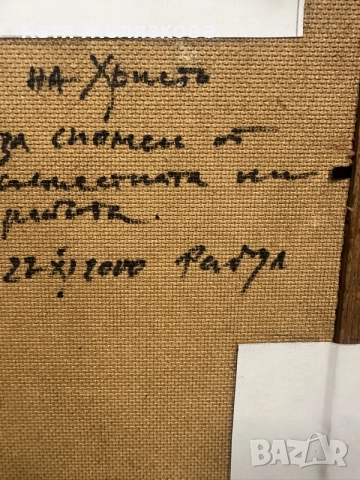 на Христо
за спомен от
съвместната ни
работа.
22 XI 2000 Радул
BAZAR